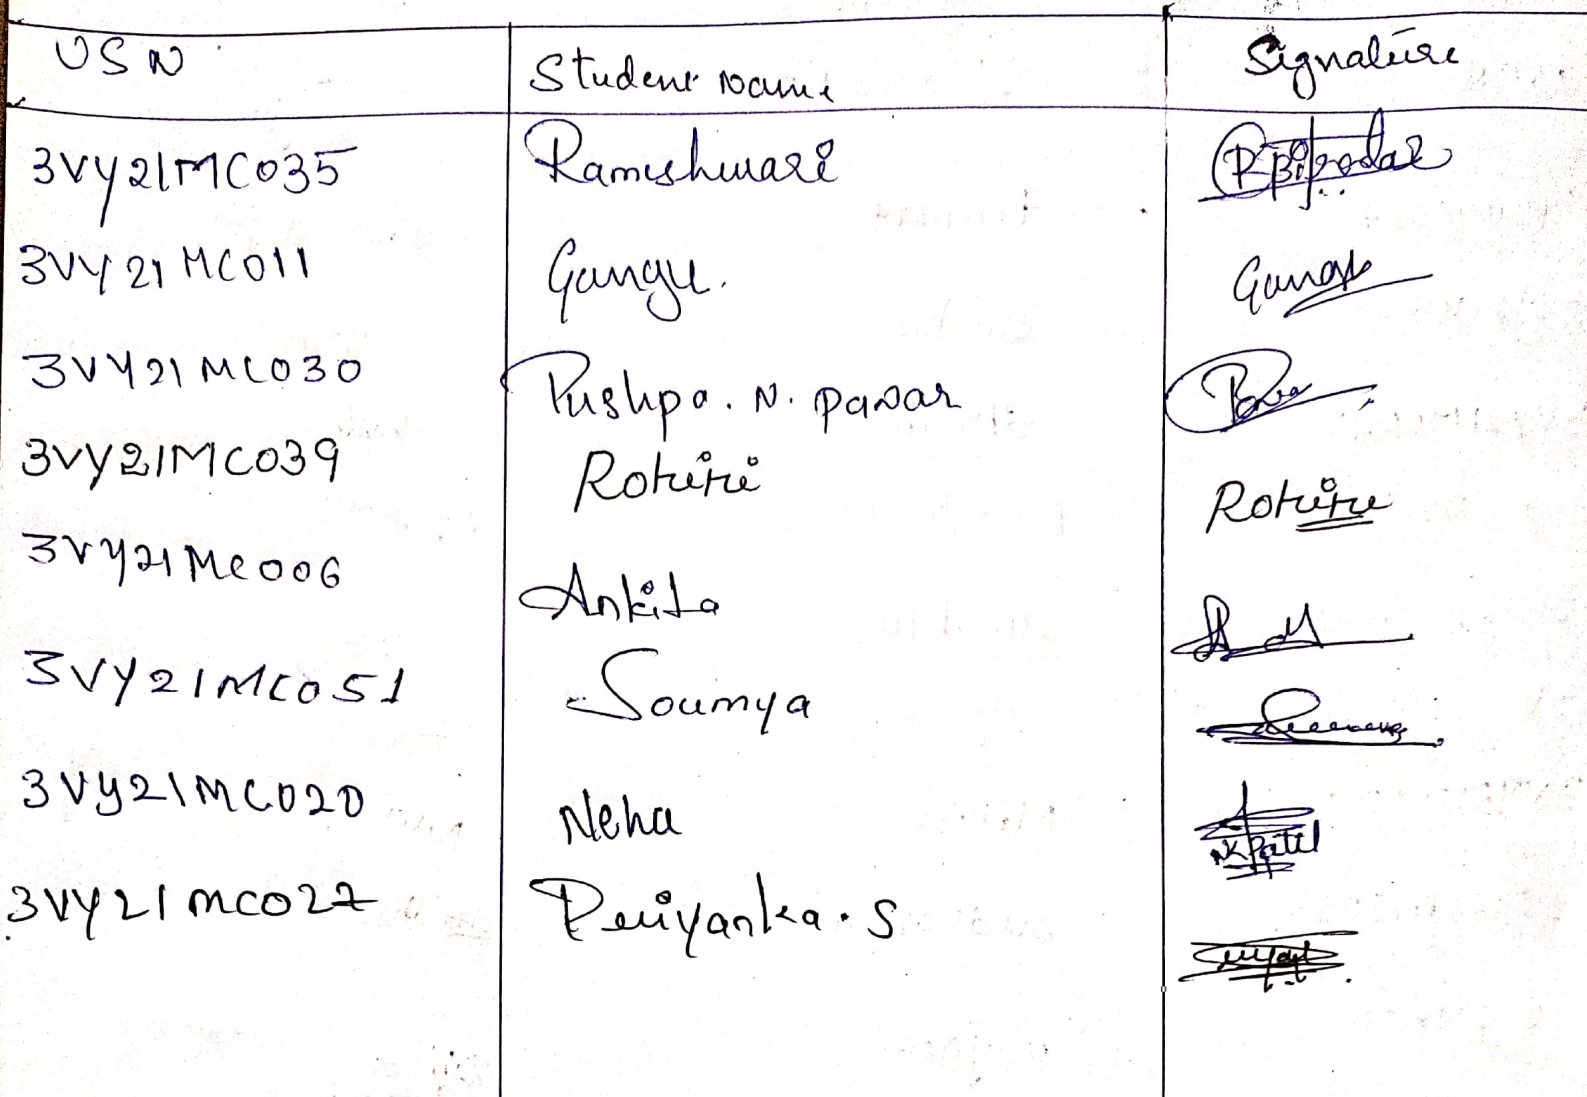 USN Student Name Signature
3VY21MC035 Rameshwari
3VY21MC011 Gangu. Gangu
3VY21MC030 Pushpa. N. Pawar
3VY21MC039 Rohini Rohini
3VY21MC006 Ankita
3VY21MC051 Soumya
3VY21MC020 Neha NKPatil
3VY21MC027 Priyanka. S